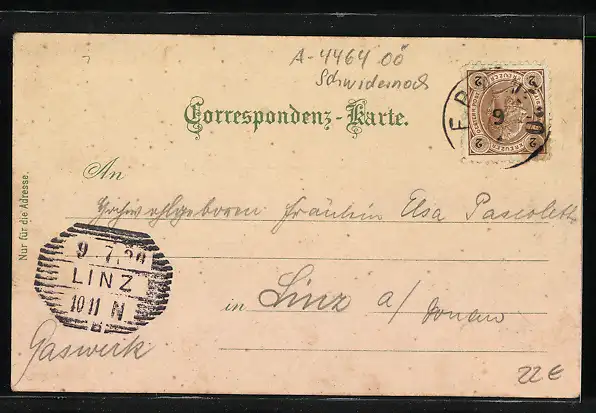 A-4464 OÖ
Schwidernoch
Correspondenz-Karte.
2 KREUZER 2
9
An
Hochwohlgeboren Fräulein Elsa Pascoleth
Nur für die Adresse.
9.7.
LINZ
10 11 N
B
in Linz a/ Donau
Gaswerk
22 €